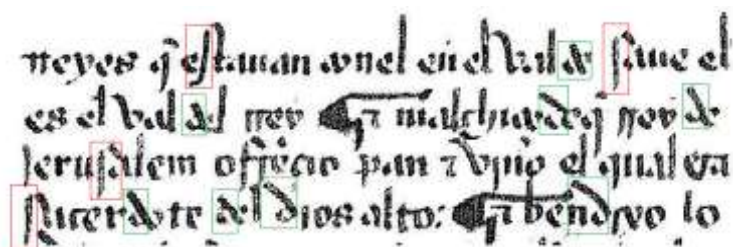 rreyes q̃ estauan conel enel val de saue el
es el val del rrey ¶ τ malchisedeq̃ rrey de
jerusalem ofrescio pan τ vino el qual era
sacerdote del dios alto: ¶ τ bendixo lo